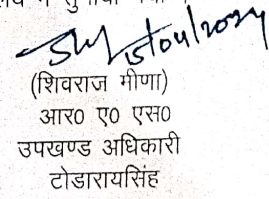 15/04/2024
(शिवराज मीणा)
आर० ए० एस०
उपखण्ड अधिकारी
टोडारायसिंह